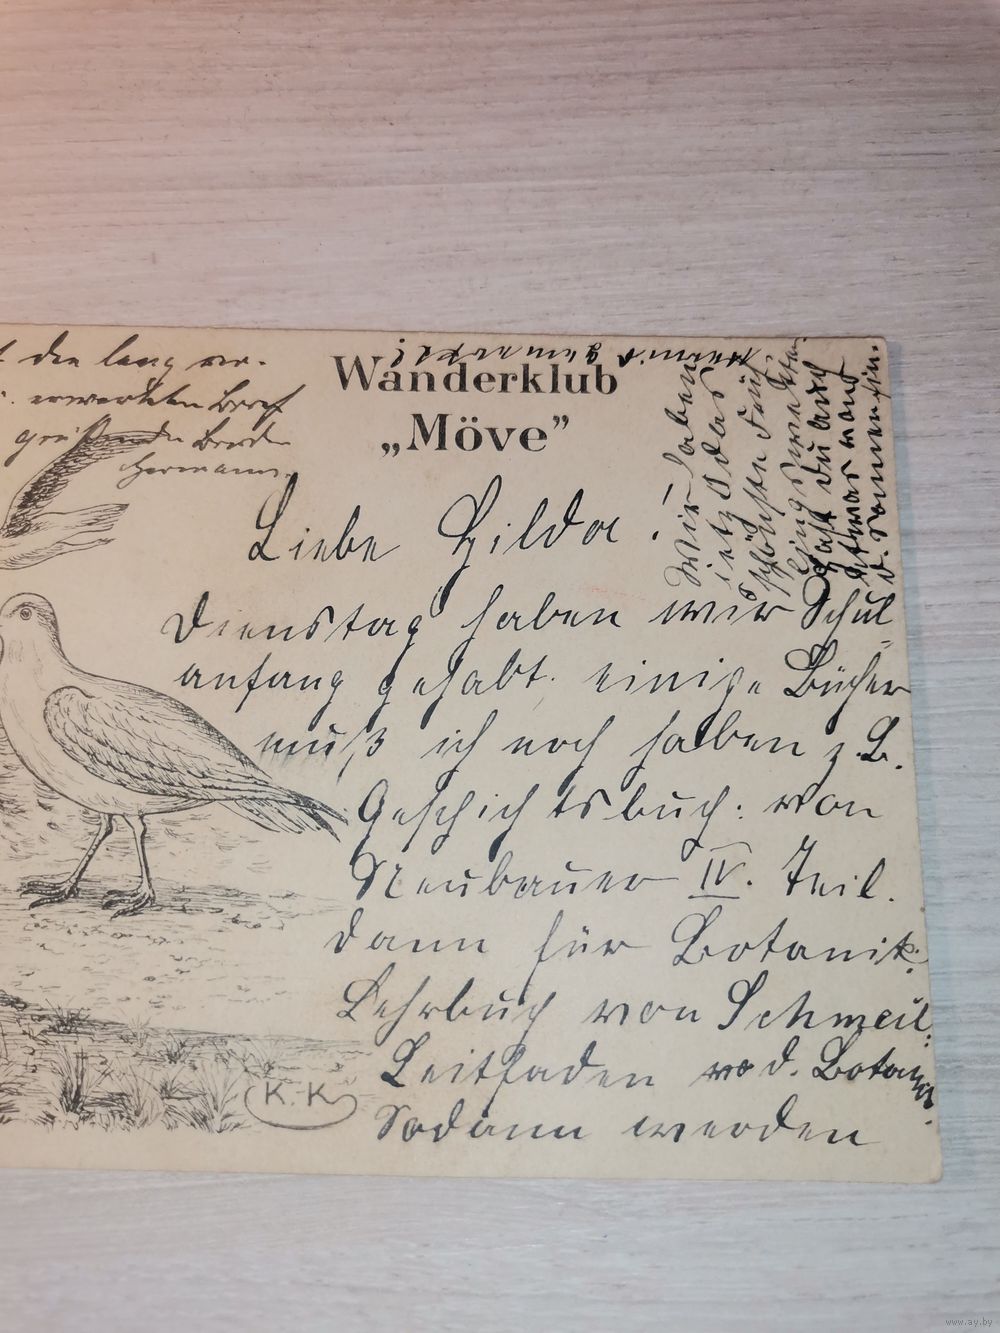 den lang er-
erwarteten Brief
grüßenden Bruder
Hermann.
Wanderklub
„Möve”
Wir haben
jetzt das
schönste Früh-
lingswetter.
Hast Du auch
etwas von
d. Sonnenfin.
Liebe Hilda!
Dienstag haben wir Schul-
anfang gehabt. einige Bücher
muß ich noch haben z. B.
Geschichtsbuch: von
Neubauer IV. Teil.
dann für Botanik:
Lehrbuch von Schmeil:
Leitfaden d. Botanik.
Sodann werden
K. K
www.ay.by